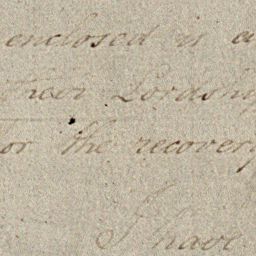 enclosed is a
their Lordship
for the recovery
I have